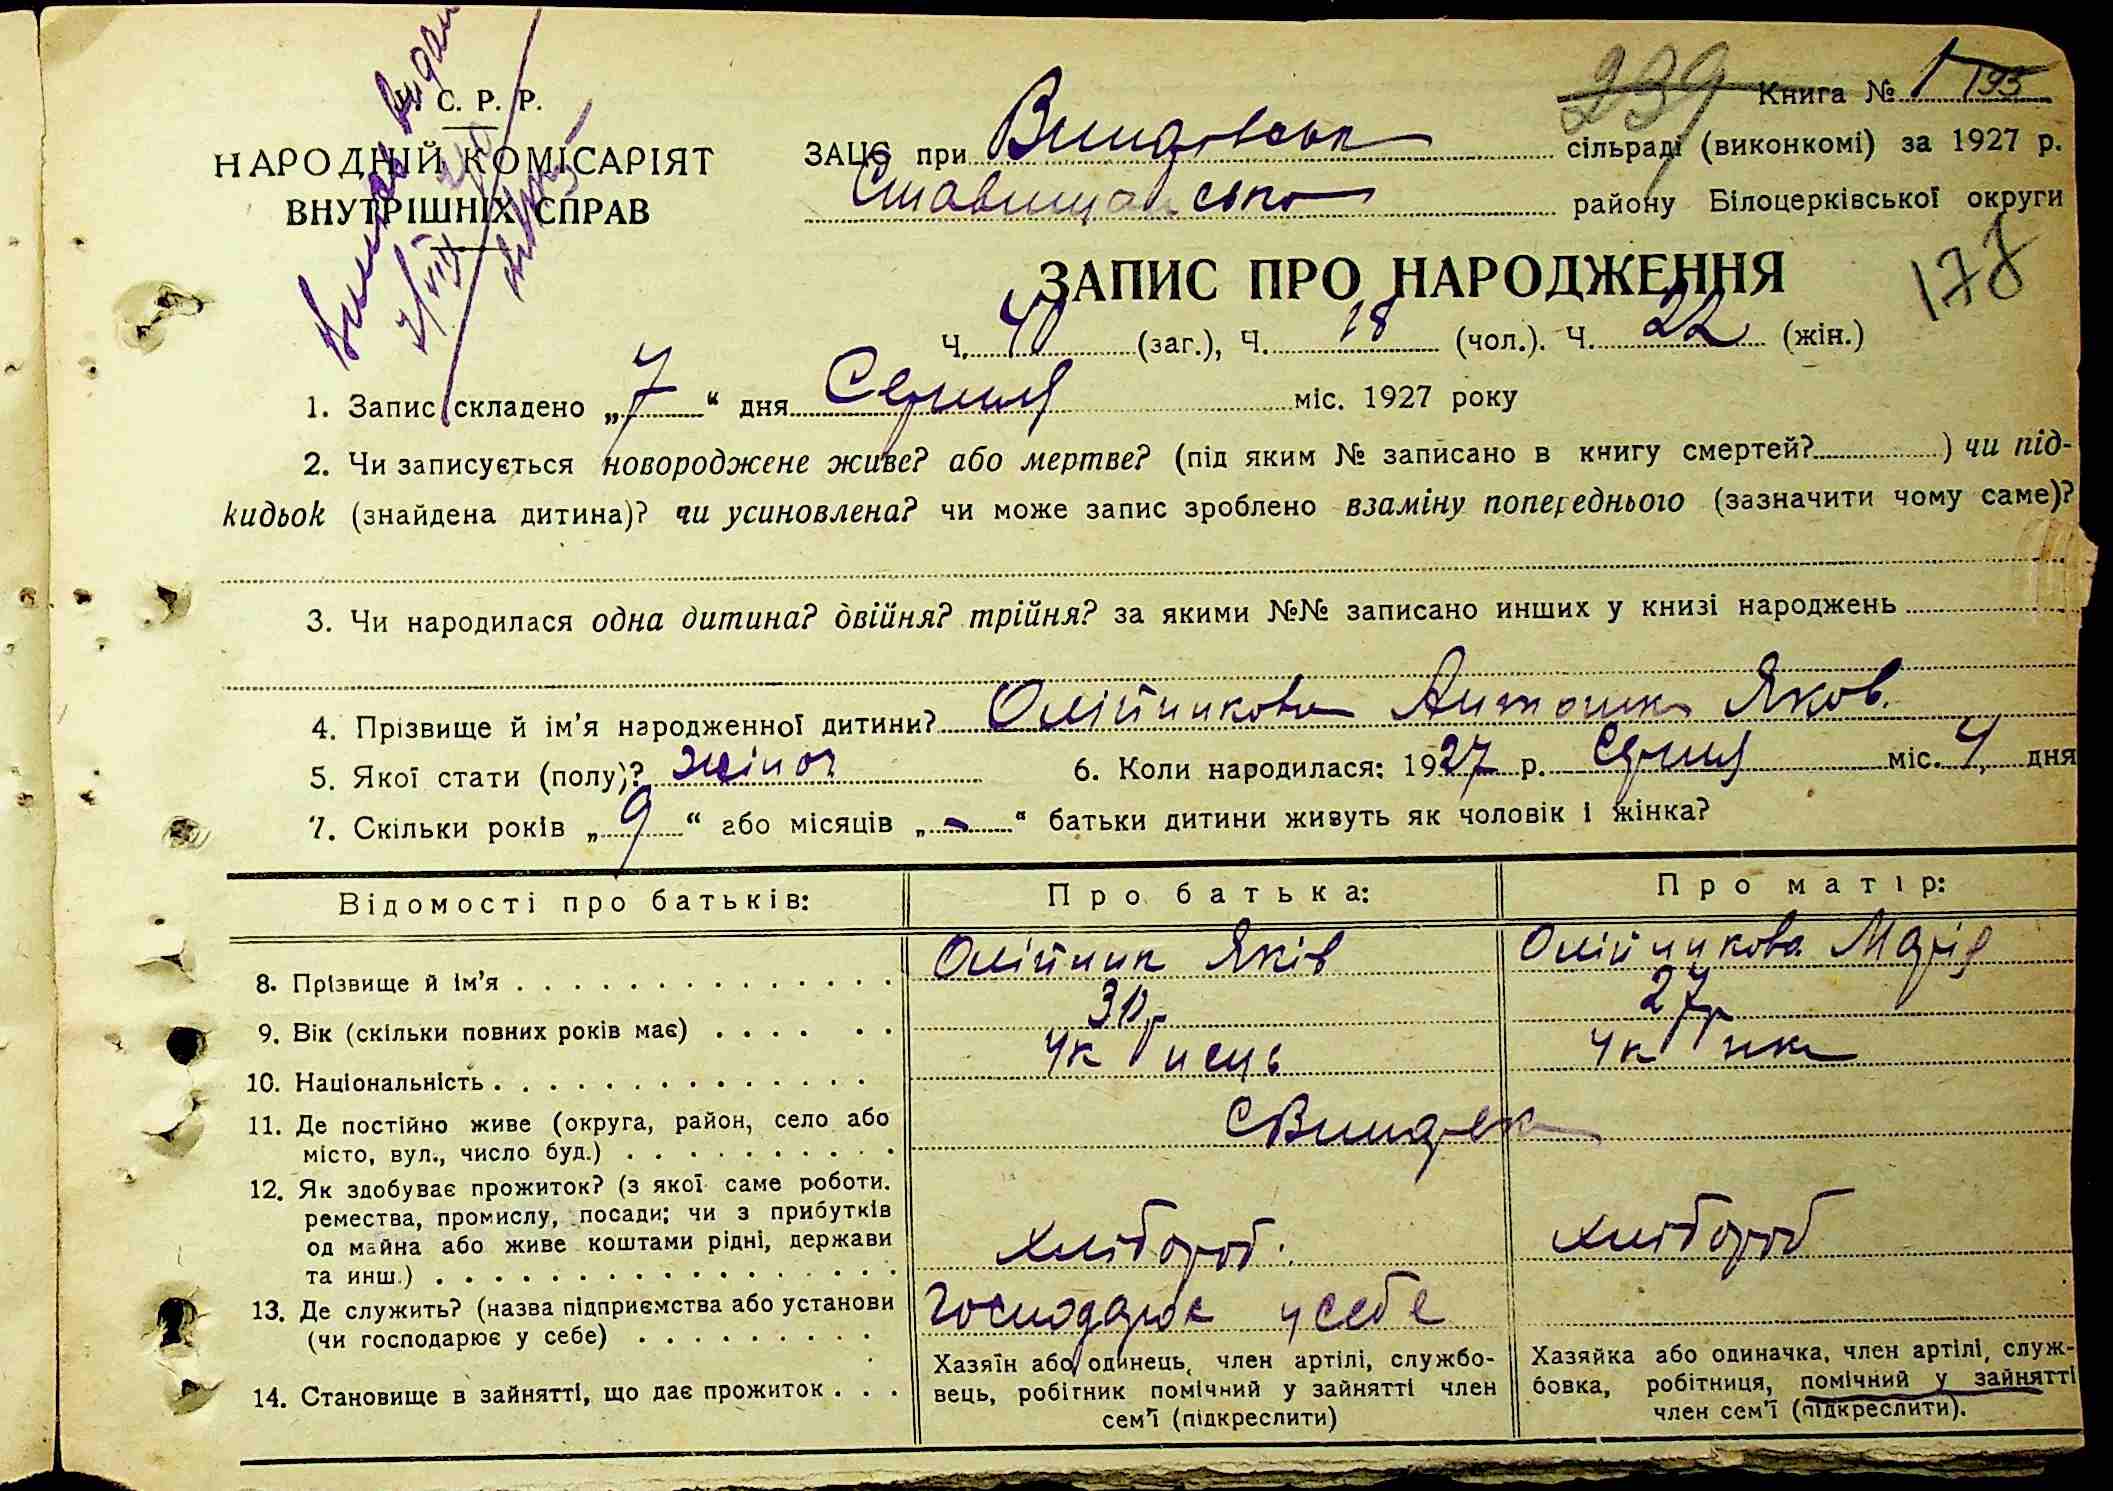 С. Р. Р.
НАРОДНІЙ КОМІСАРІЯТ
ВНУТРІШНІХ СПРАВ
239 Книга № 1 193
ЗАЦС при сільраді (виконкомі) за 1927 р.
Ставищанська району Білоцерківської округи
ЗАПИС ПРО НАРОДЖЕННЯ
178
Ч. 40 (заг.), Ч. 18 (чол.). Ч. 22 (жін.)
1. Запис складено „7“ дня Серпня міс. 1927 року
2. Чи записується новороджене живе? або мертве? (під яким № записано в книгу смертей? ) чи під-
кидьок (знайдена дитина)? чи усиновлена? чи може запис зроблено взаміну попереднього (зазначити чому саме)?
3. Чи народилася одна дитина? двійня? трійня? за якими №№ записано инших у книзі народжень
4. Прізвище й ім’я народженної дитини? Олійникова Антоніна Яков.
5. Якої стати (полу)? жіноч 6. Коли народилася: 1927 р. Серпня міс. 4, дня
7. Скільки років „9“ або місяців „-“ батьки дитини живуть як чоловік і жінка?
Відомості про батьків: Про батька: Про матір:
8. Прізвище й ім’я Олійник Яків Олійникова Марія
9. Вік (скільки повних років має) 30р 27р
10. Національність
11. Де постійно живе (округа, район, село або
місто, вул., число буд.)
12. Як здобуває прожиток? (з якої саме роботи.
ремества, промислу, посади; чи з прибутків
од майна або живе коштами рідні, держави
та инш.) хлібороб. хлібороб
13. Де служить? (назва підприємства або установи
(чи господарює у себе) Господарює у себе
14. Становище в зайнятті, що дає прожиток
Хазяїн або одинець, член артілі, службо-
вець, робітник помічний у зайнятті член
сем’ї (підкреслити)
Хазяйка або одиначка, член артілі, служ-
бовка, робітниця, помічний у зайнятті
член сем’ї (підкреслити).